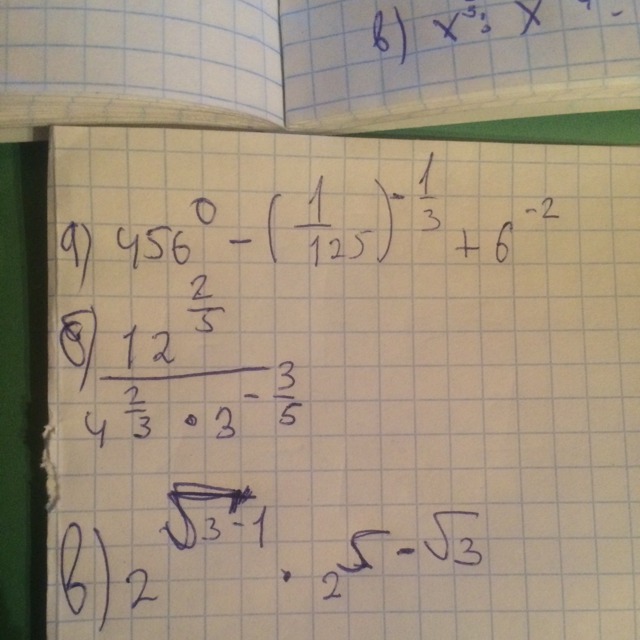 в) x³ : x
а) 456⁰ - (1/125)^(-1/3) + 6⁻²
б) 12^(2/5) / (4^(2/3) · 3^(-3/5))
в) 2^(√3-1) · 2^(5-√3)